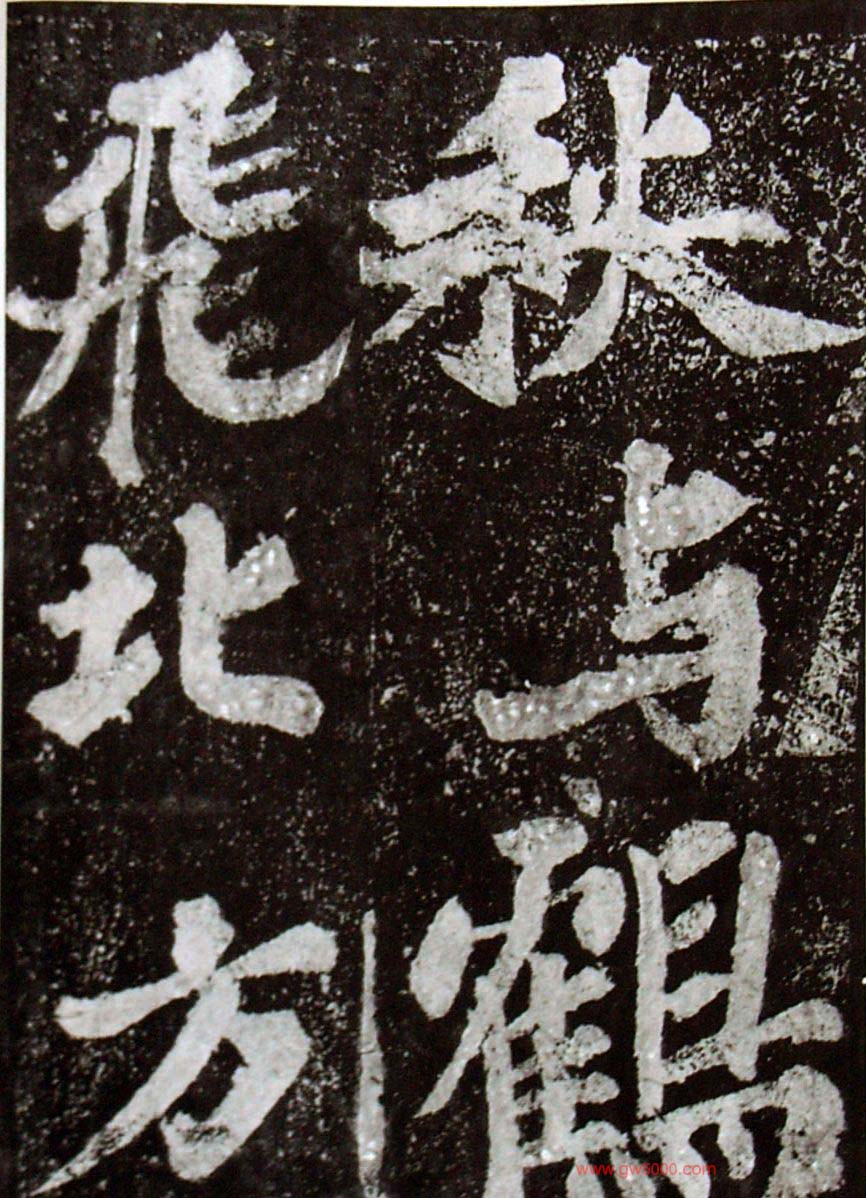 秋与鶴
飛北方
www.gw5000.com